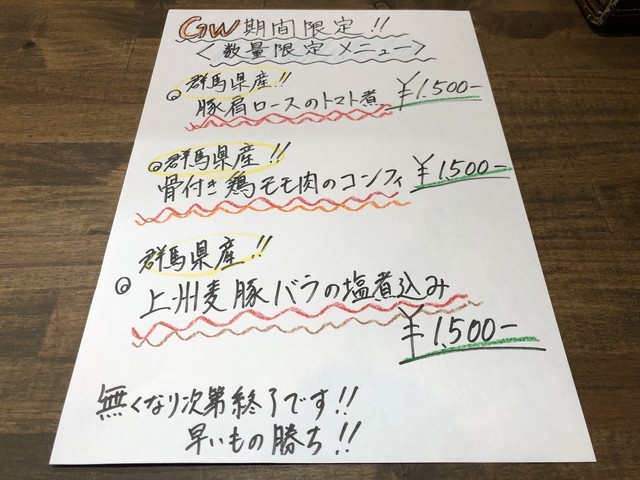 GW期間限定!!
<数量限定メニュー>
群馬県産!!
豚肩ロースのトマト煮 ¥1.500-
群馬県産!!
骨付き鶏モモ肉のコンフィ ¥1.500-
群馬県産!!
上州麦豚バラの塩煮込み
¥1.500-
無くなり次第終了です!!
早いもの勝ち!!